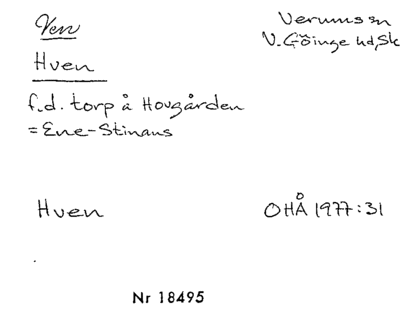 Ven
Verums sn
V. Göinge hd, Sk
Hven
f.d. torp å Hovgården
= Ene-Stinans
Hven
OHÅ 1977:31
Nr 18495